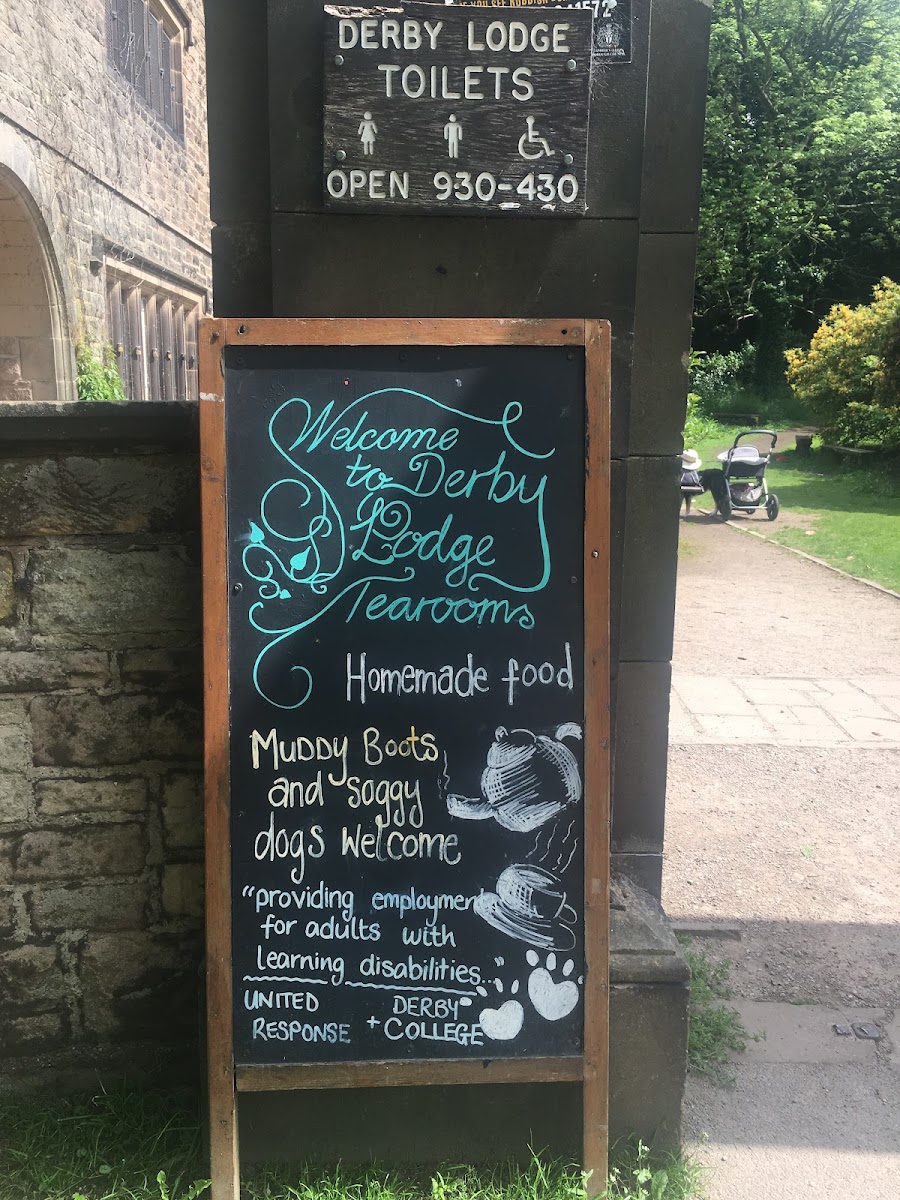 IF YOU SEE
1572
DERBY LODGE
TOILETS
OPEN 930-430
Welcome
to Derby
Lodge
Tearooms
Homemade food
Muddy Boots
and soggy
dogs welcome
"providing employment
for adults with
learning disabilities..
UNITED
RESPONSE
+
DERBY
COLLEGE